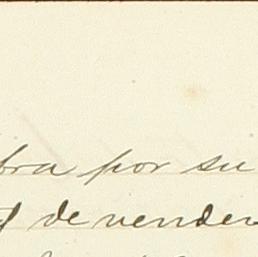 bra por su
d de vender